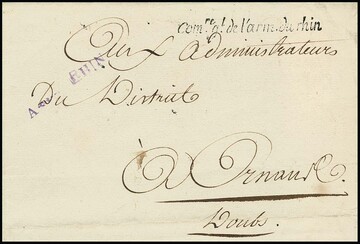 com.re g.l de l'arm. du rhin
Aux administrateurs
A RHIN
Du District
A Ornans.
Doubs.